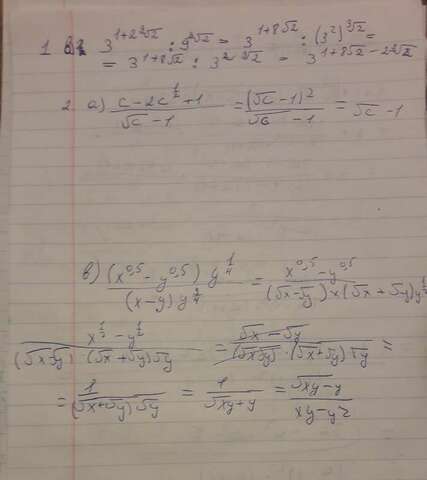 1 в) 3^{1+2∛2} : 9^{∛2} = 3^{1+8√2} : (3²)^{∛2} =
= 3^{1+8√2} : 3^{2∛2} = 3^{1+8√2-2∛2}
2 а) (c-2c^{1/2}+1)/(√c-1) = (√c-1)²/(√c-1) = √c-1
в) ((x^{0,5}-y^{0,5}) y^{1/4})/((x-y) y^{3/4}) = (x^{0,5}-y^{0,5})/((√x-√y)×(√x+√y)y^{1/2})
(x^{1/2}-y^{1/2})/((√x-√y)·(√x+√y)√y) = (√x-√y)/((√x-√y)·(√x+√y)√y) =
= 1/((√x+√y)√y) = 1/(√xy+y) = (√xy-y)/(xy-y²)